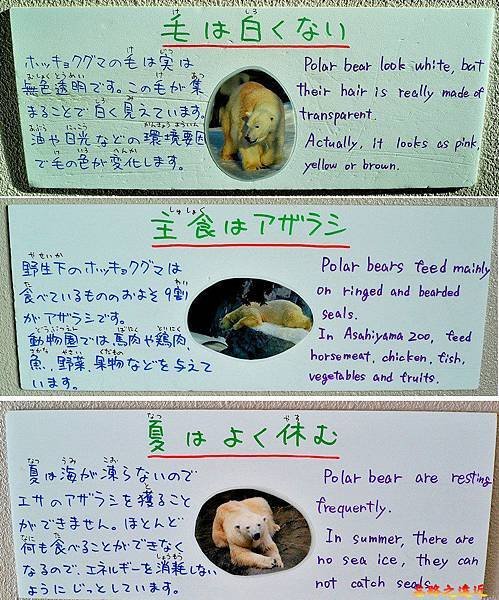 毛は白くない
ホッキョクグマの毛は実は
無色透明です。この毛が集
まることで白く見えています。
油や日光などの環境要因
で毛の色が変化します。
Polar bear look white, but
their hair is really made of
transparent.
Actually, it looks as pink,
yellow or brown.
主食はアザラシ
野生下のホッキョクグマは
食べているもののおよそ9割
がアザラシです。
動物園では馬肉や鶏肉、
魚、野菜、果物などを与えて
います。
Polar bears feed mainly
on ringed and bearded
seals.
In Asahiyama zoo, feed
horsemeat, chicken, fish,
vegetables and fruits.
夏はよく休む
夏は海が凍らないので
エサのアザラシを獲ること
ができません。ほとんど
何も食べることができなく
なるので、エネルギーを消耗しない
ようにじっとしています。
Polar bear are resting
frequently.
In summer, there are
no sea ice, they can
not catch seals.